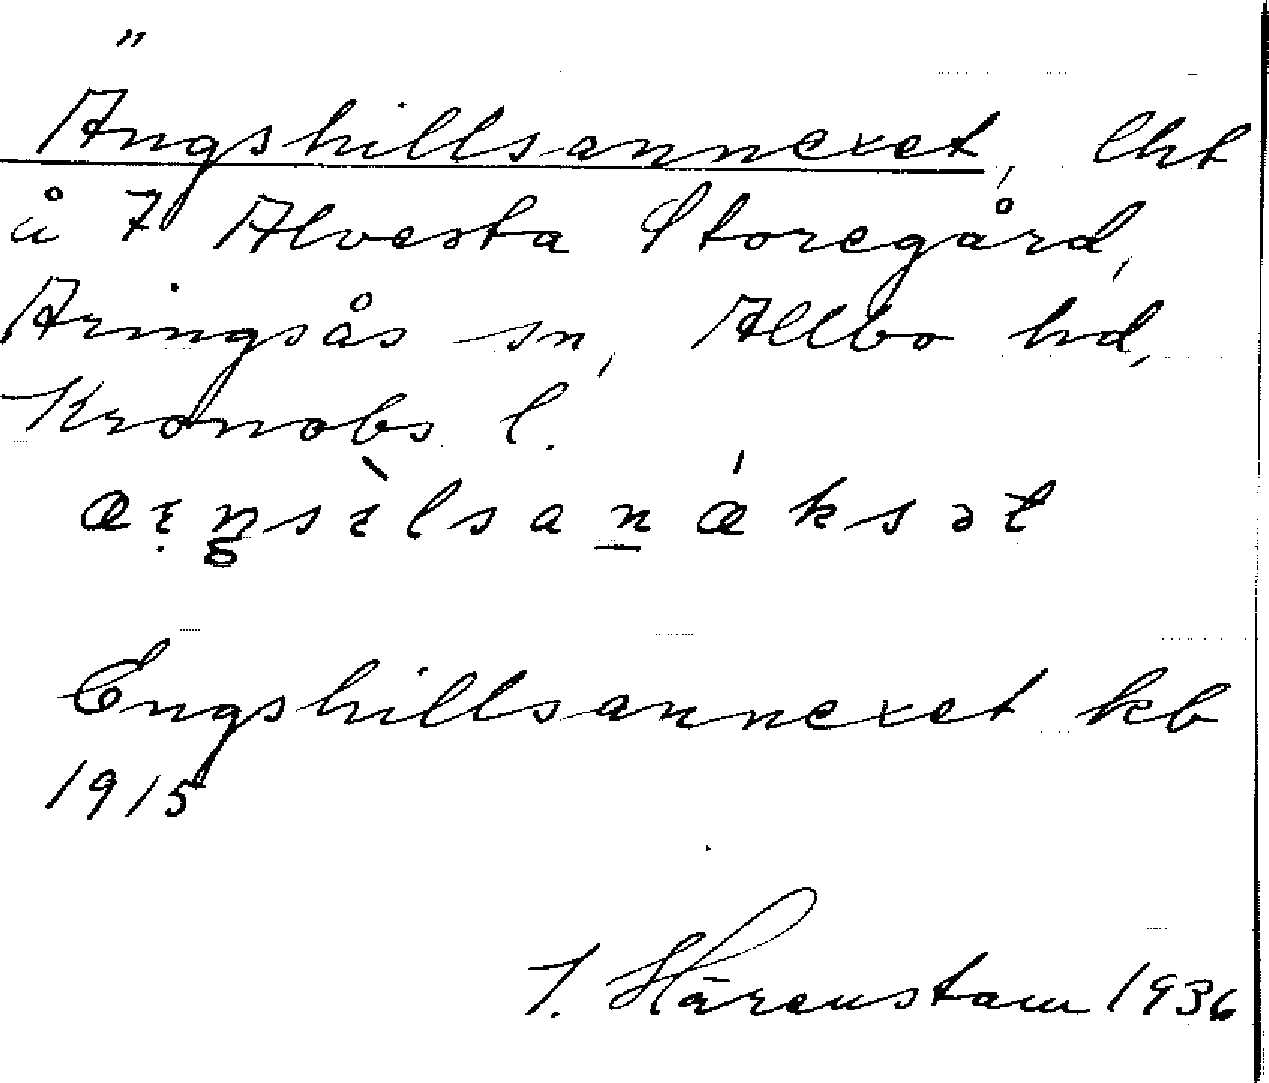 Ängshillsannexet, lht
å 7 Alvesta Storegård,
Aringsås sn, Allbo hd,
Kronobs l.
Engshillsannexet kb
1915
J. Härenstam 1936